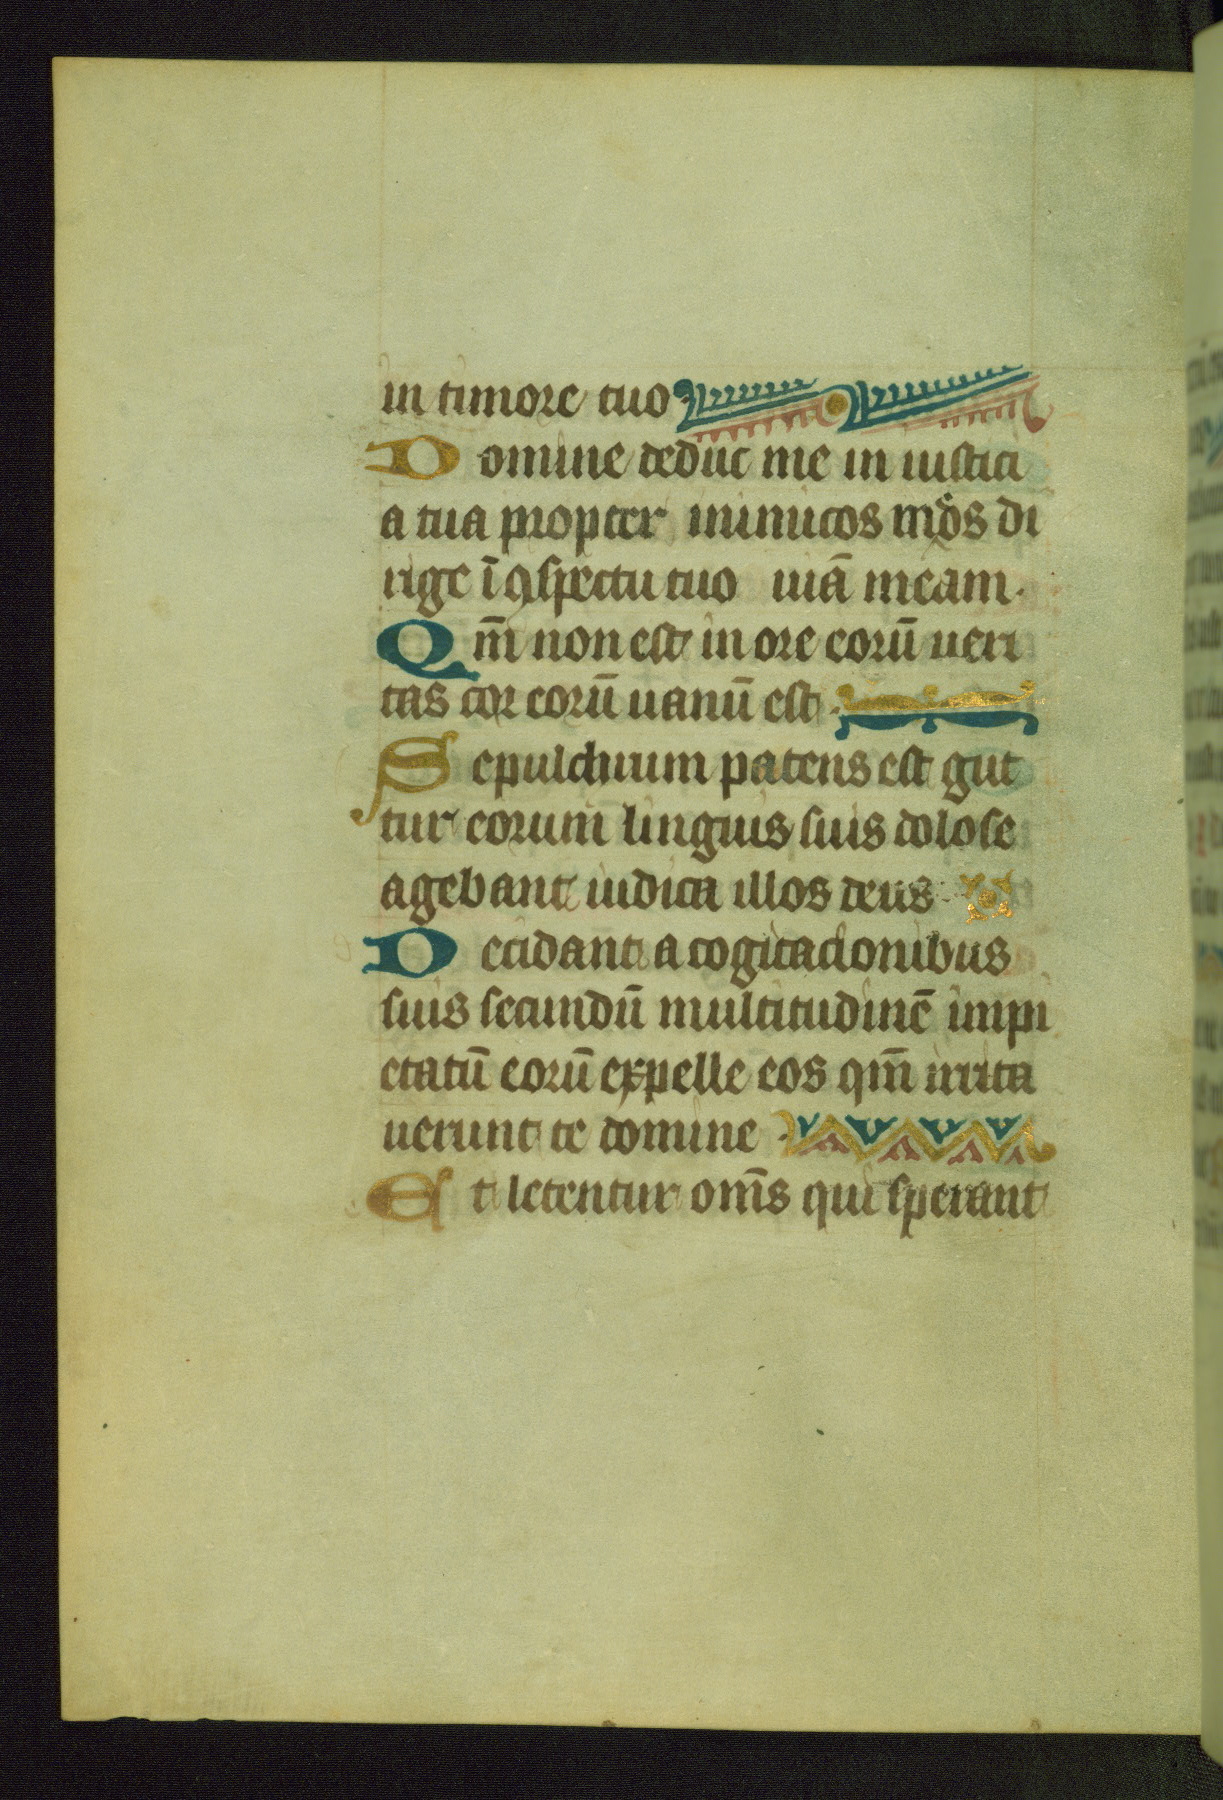 in timore tuo
Domine deduc me in iustici
a tua propter inimicos meos di
rige ī ꝯspectu tuo uiā meam.
Qm̄ non est in ore corū ueri
tas cor eorū uanū est.
Sepulchrum patens est gut
tur eorum linguis suis dolose
agebant iudica illos deus
Decidant a cogitacionibus
suis secundū multitudinē impi
etatū eorū expelle eos qm̄ irrita
uerunt te domine
Et letentur om̄s qui sperant